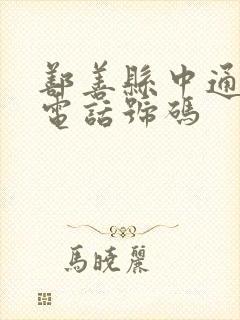 鄯善縣中通
電話號碼
馬曉麗